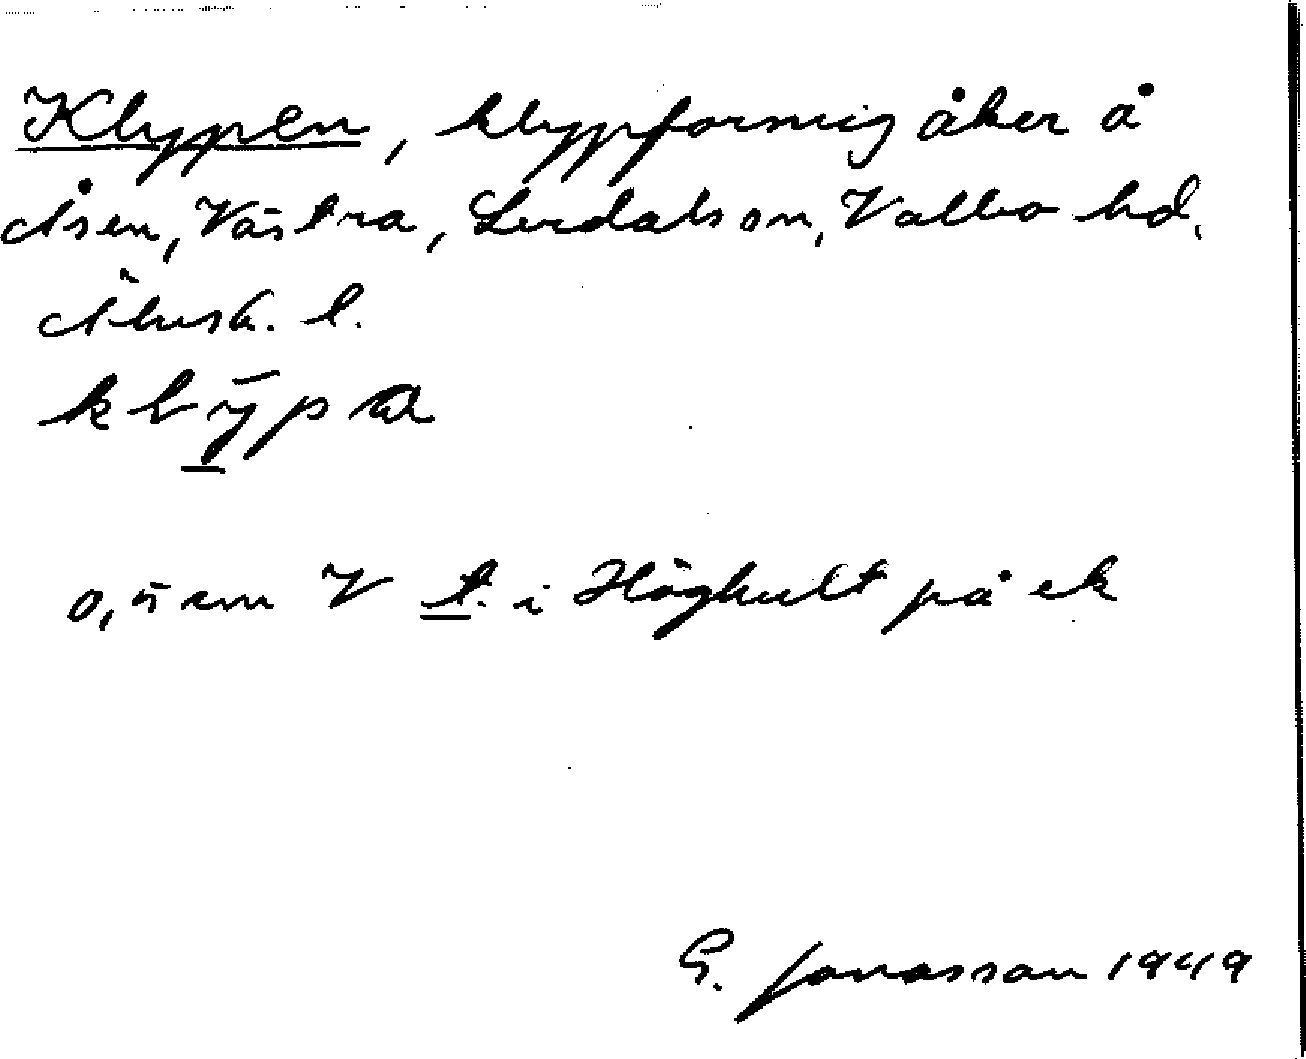 Klyppen, klyppformig åker å
Åsen, Västra, Lerdals sn, Valbo hd,
Älvsb. l.
klȳpa
0,5 cm V l. i Höghult på ek
G. Jonasson 1949